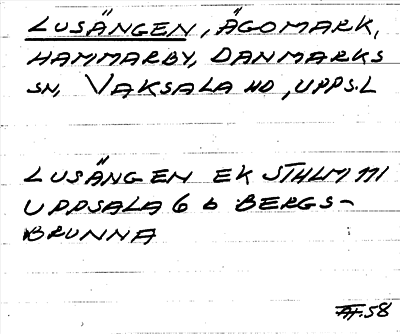 LUSÄNGEN, ÄGOMARK,
HAMMARBY, DANMARKS
SN, VAKSALA HD, UPPS.L
LUSÄNGEN EK STHLM 111
UPPSALA 6 b BERGS-
BRUNNA
.58